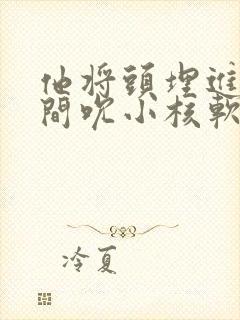 他将頭埋進
間吮小核軟
冷夏